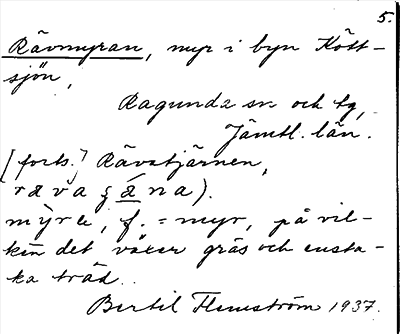 5.
Rävmyran, myr i byn Kött-
sjön,
Ragunda sn och tg,
Jämtl. län.
[forts.] Rävatjärnen,
rävaʒána).
mỳre, f. = myr, på vil-
ken det växer gräs och ensta-
ka träd.
Bertil Flemström 1937.